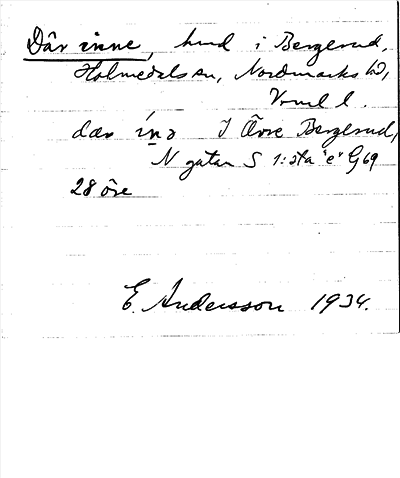 Där inne, hmd i Bergerud,
Holmedals sn, Nordmarks hd,
Vrml l.
dær ína I Övre Bergerud,
N gatan S 1:sta "e" G 69
28 öre
E. Andersson 1934.